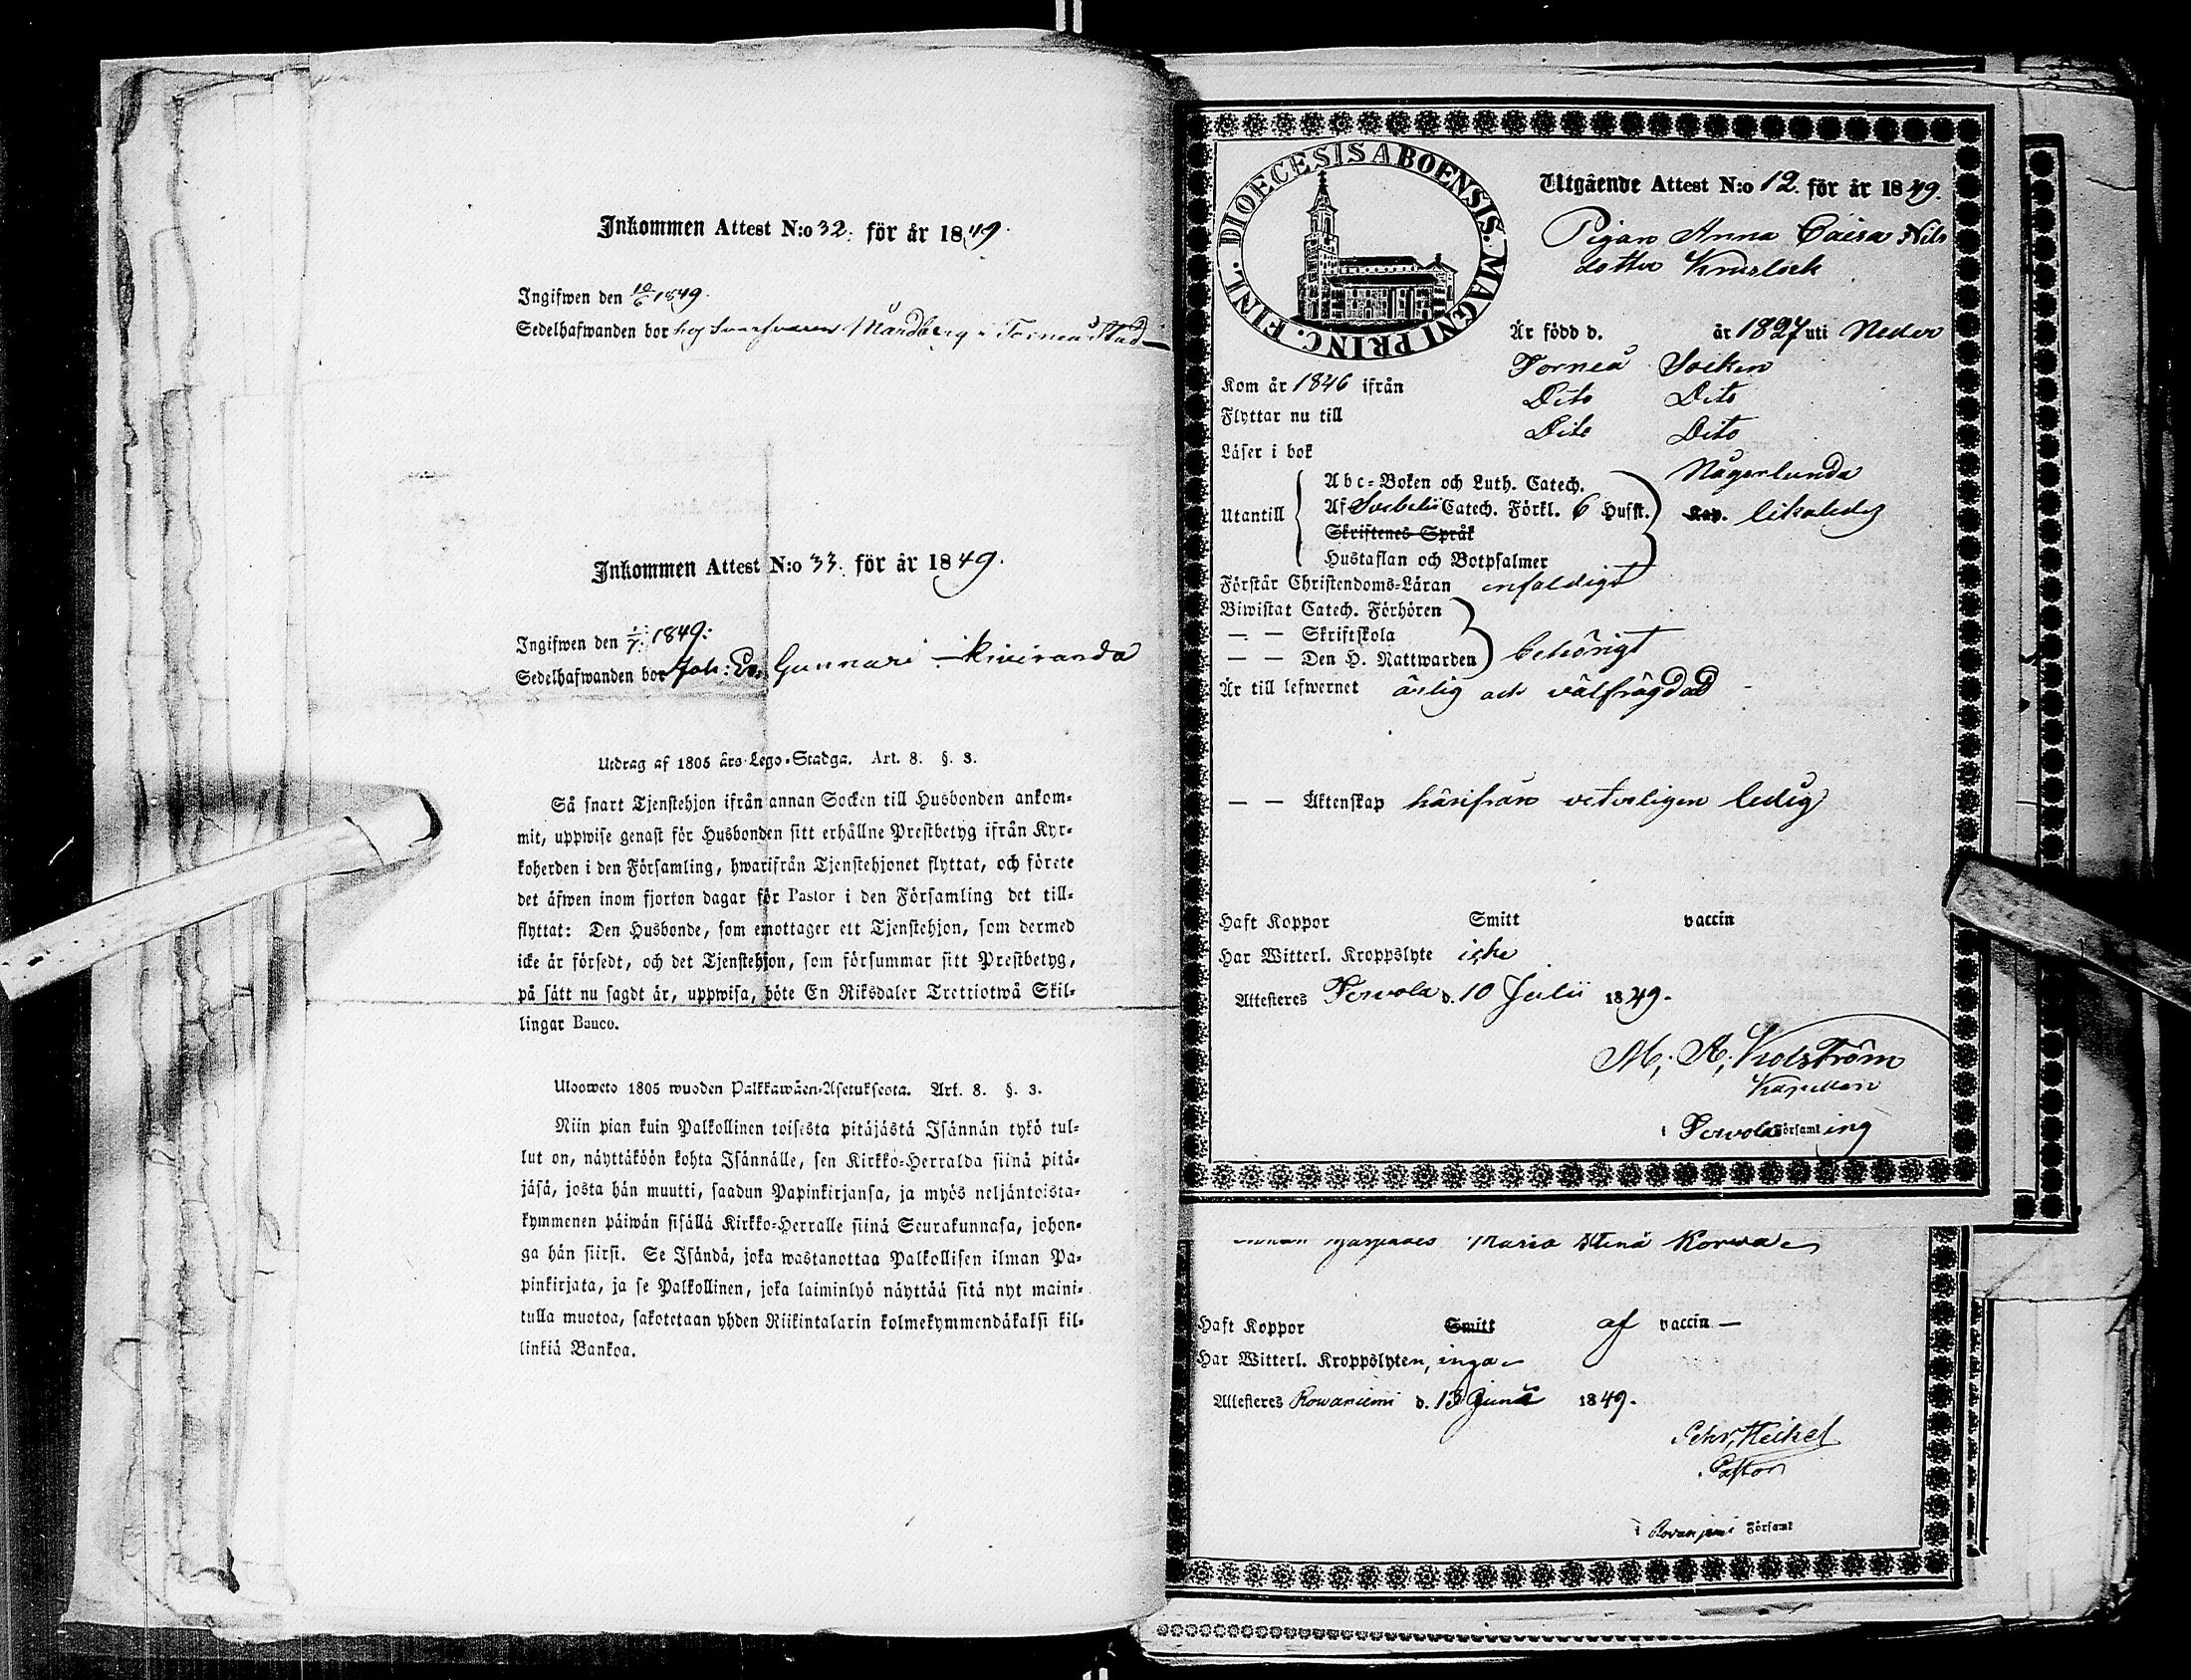 Inkommen Attest N:o 32. för år 1849.
Ingifwen den 10/6 1849.
Sedelhafwanden bor hos Mårdberg Torneå Stad
Inkommen Attest N:o 33. för år 1849.
Ingifwen den 1/7 1849.
Sedelhafwanden bor Joh: Er. Gunnari Kiviranda
Utdrag af 1805 års Lego-Stadga. Art. 8. §. 3.
Så snart Tjenstehjon ifrån annan Socken till Husbonden ankom-
mit, uppwise genast för Husbonden sitt erhållne Prestbetyg ifrån Kyr-
koherden i den Församling, hwarifrån Tjenstehjonet flyttat, och förete
det äfwen inom fjorton dagar för Pastor i den Församling det till-
flyttat: Den Husbonde, som emottager ett Tjenstehjon, som dermed
icke är försedt, och det Tjenstehjon, som försummar sitt Prestbetyg,
på sätt nu sagdt är, uppwisa, böte En Riksdaler Trettiotwå Skil-
lingar Banco.
Uloosweto 1805 wuoden Palkkawäen-Asetuksesta. Art. 8. §. 3.
Niin pian kuin Palkollinen toisesta pitäjästä Isännän tykö tul-
lut on, näyttäköön kohta Isännälle, sen Kirkko-Herralda siinä pitä-
jäsä, josta hän muutti, saadun Papinkirjansa, ja myös neljäntoista-
kymmenen päiwän sisällä Kirkko-Herralle siinä Seurakunnasa, johon-
ga hän siirsi. Se Isändä, joka wastanottaa Palkollisen ilman Pa-
pinkirjata, ja se Palkollinen, joka laiminlyö näyttää sitä nyt maini-
tulla muotoa, sakotetaan yhden Riikintalarin kolmekymmendäkaksi kil-
linkiä Bankoa.
DIOECESIS ABOENSIS. MAGNI PRINC. FINL.
Utgående Attest N:o 12. för år 1849.
Pigan Anna Caisa Nils
dotter
Är född d. år 1827 uti Neder
Torneå Socken
Kom år 1846 ifrån Dito Dito
Flyttar nu till Dito Dito
Läser i bok Någorlunda
Utantill
Abc-Boken och Luth. Catech.
Af Svebelii Catech. Förkl. 6 Hufst. Kap. likaledes
Skriftenes Språk
Hustaflan och Botpsalmer
Förstår Christendoms-Läran enfaldigt
Biwistat Catech. Förhören
— — Skriftskola
— — Den H. Nattwarden behörigt
Är till lefwernet ärlig och välfrägdad
— — Äktenskap härifrån veterligen ledig
Haft Koppor Smitt vaccin
Har Witterl. Kroppslyte icke
Attesteres Tervola d. 10 Julii 1849.
M. A.
Kapellan
i Tervola Församling
Maria Stina Korva
Haft Koppor Smitt af vaccin —
Har Witterl. Kroppslyten, inga
Attesteres Rowaniemi d. 13 Junii 1849.
Heikel
Pastor
i Rovaniemi Församl